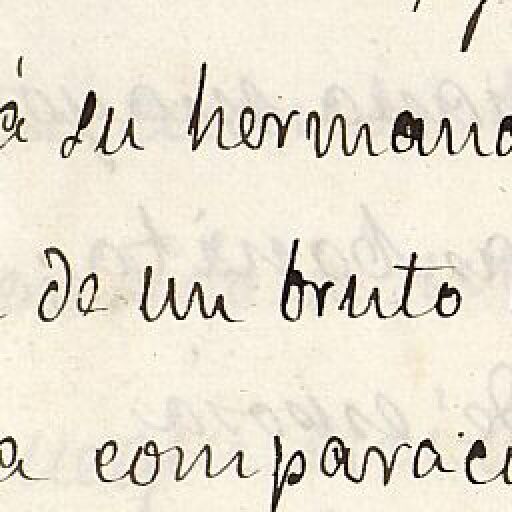 á su hermano
de un bruto
a comparaci